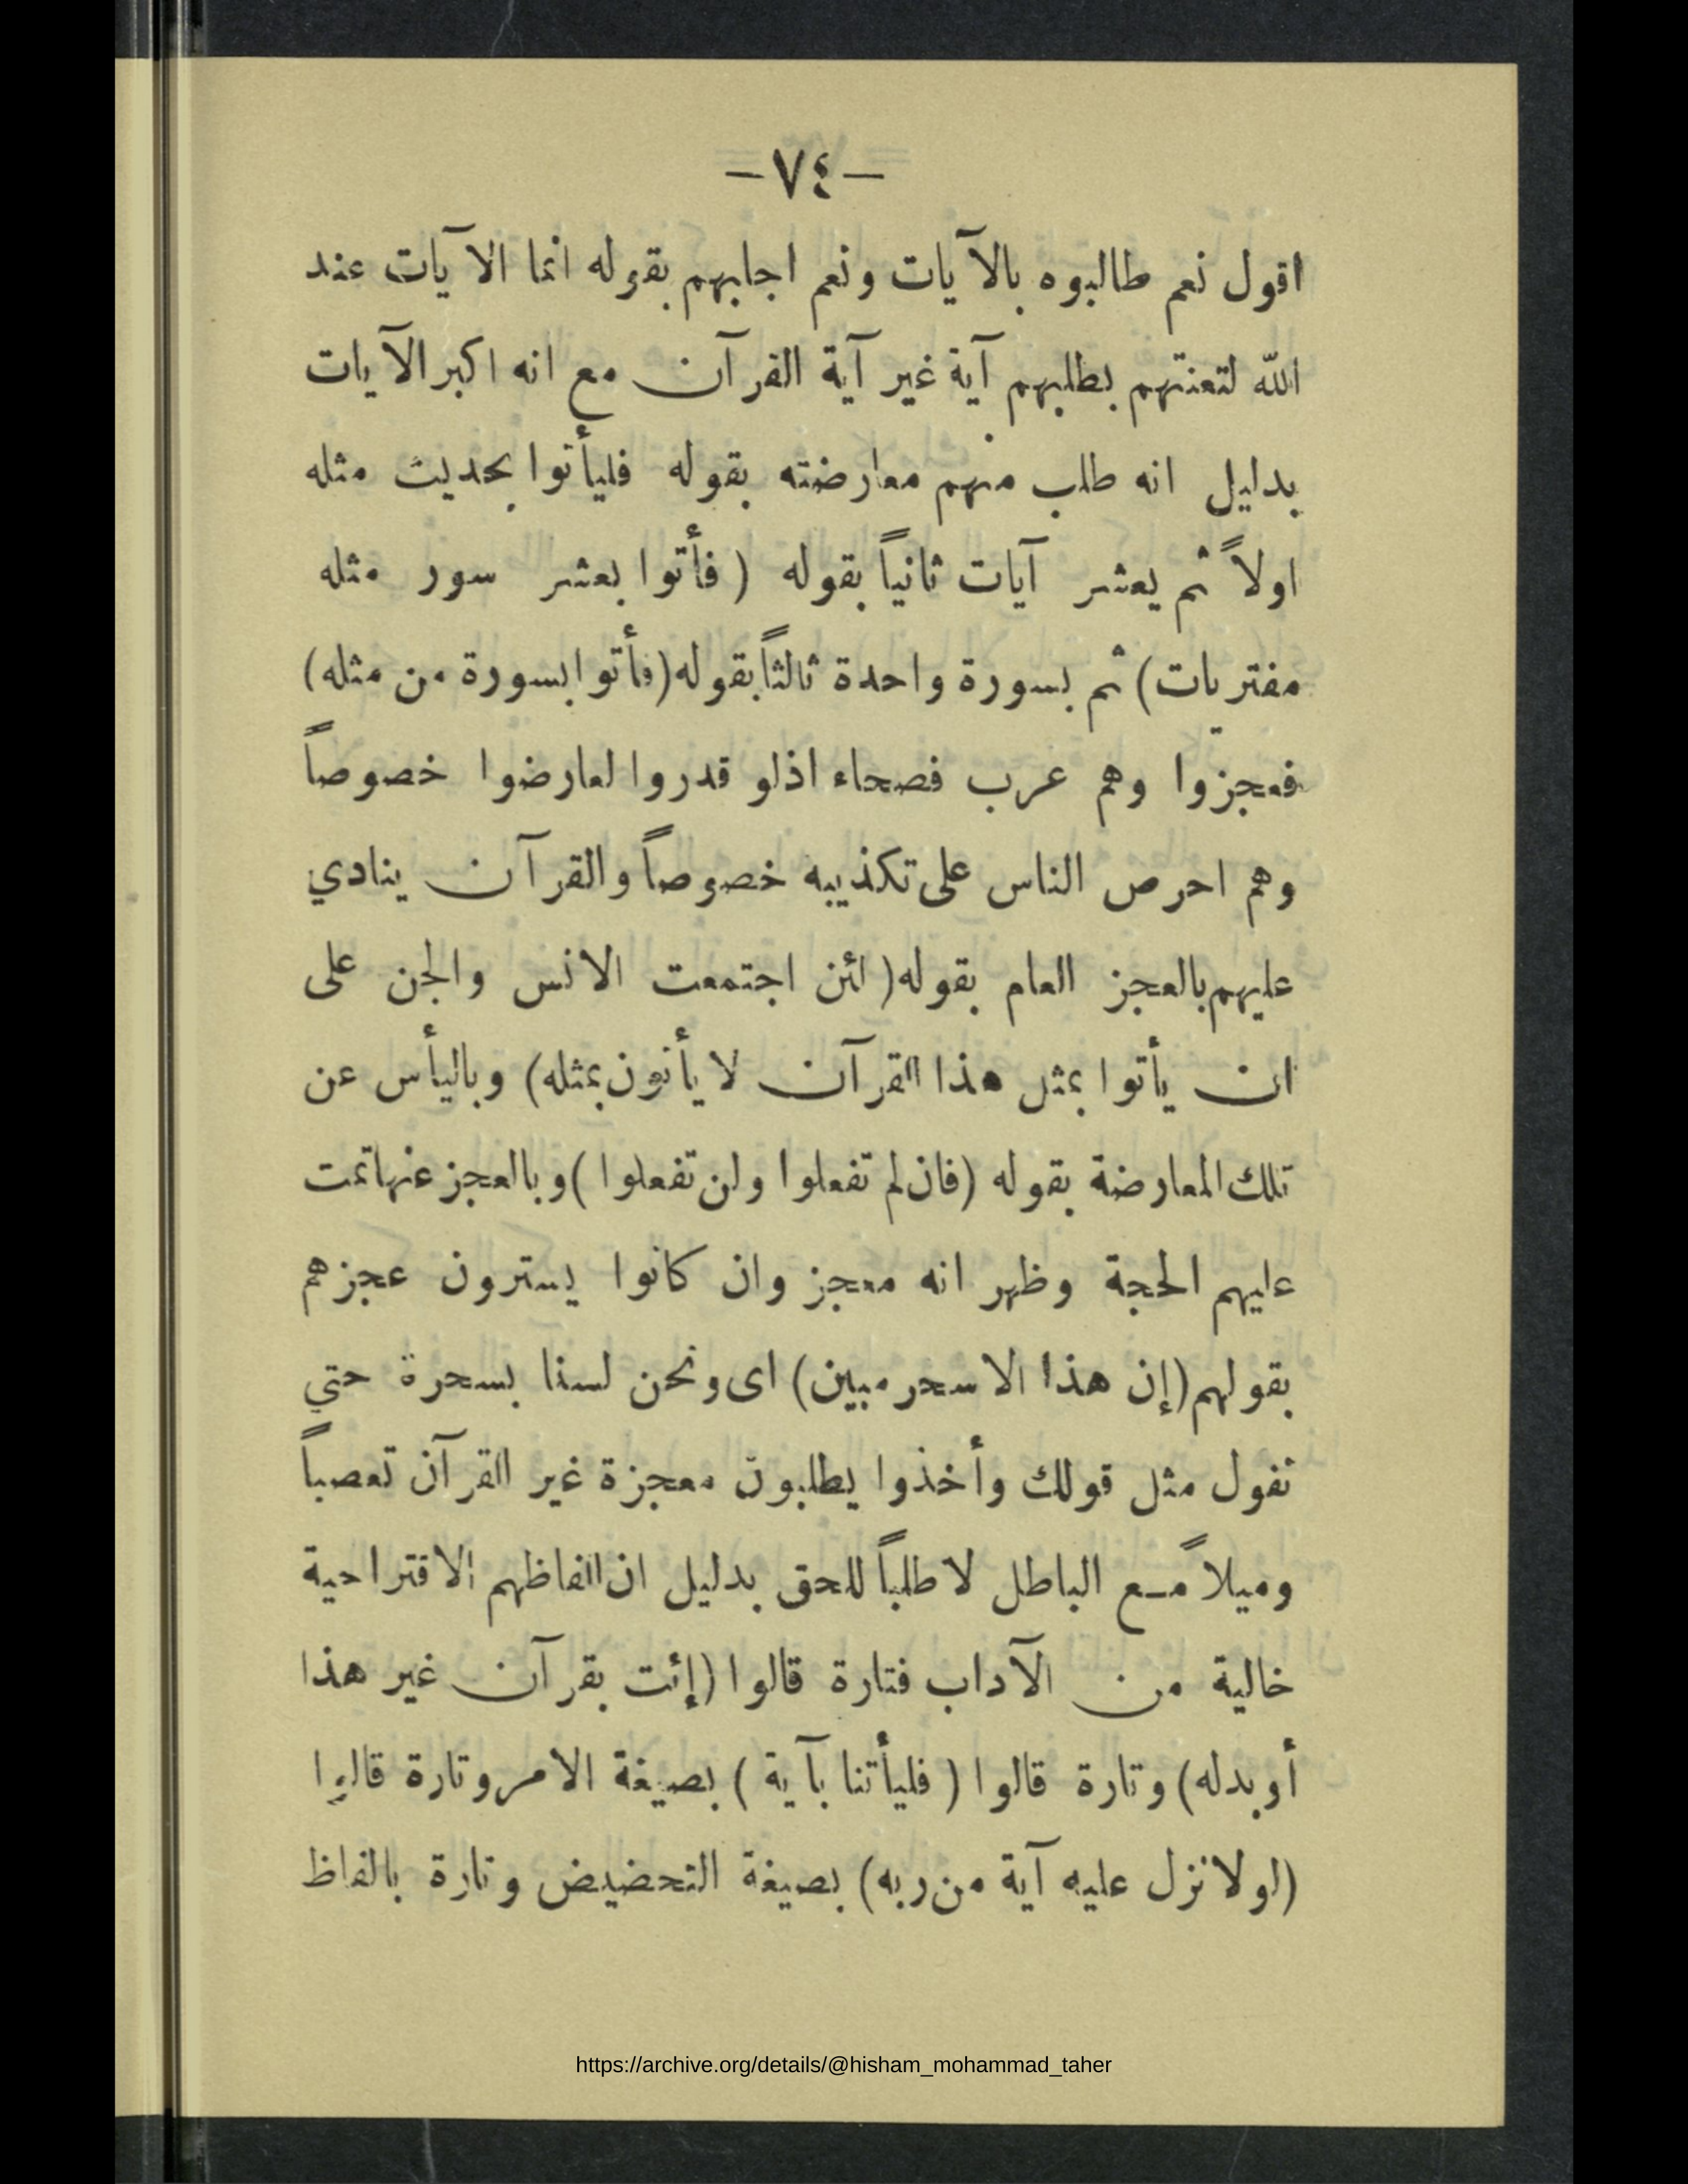 -٧٤-
اقول نعم طالبوه بالآيات ونعم اجابهم بقوله انما الآيات عند
الله لتعنتهم بطلبهم آية غير آية القرآن مع انه اكبر الآيات
بدليل انه طلب منهم معارضته بقوله فليأتوا بحديث مثله
اولاً ثم يعشر آيات ثانياً بقوله (فأتوا بعشر سور مثله
مفتريات) ثم بسورة واحدة ثالثاً بقوله (فأتوا بسورة من مثله)
فعجزوا وهم عرب فصحاء اذلو قدروا لعارضوا خصوصاً
وهم احرص الناس على تكذيبه خصوصاً والقرآن ينادي
عليهم بالعجز العام بقوله (لئن اجتمعت الانس والجن على
ان يأتوا بمثل هذا القرآن لا يأتون بمثله) وباليأس عن
تلك المعارضة بقوله (فان لم تفعلوا ولن تفعلوا) وبالعجز عنها تمت
عليهم الحجة وظهر انه معجز وان كانوا يسترون عجزهم
بقولهم (إن هذا الا سحر مبين) اى ونحن لسنا بسحرة حتي
نفول مثل قولك وأخذوا يطلبون معجزة غير القرآن تعصباً
وميلاً مع الباطل لا طلباً للحق بدليل ان الفاظهم الاقتراحية
خالية من الآداب فتارة قالوا (إئت بقرآن غير هذا
أو بدله) وتارة قالوا (فليأتنا بآية) بصيغة الامر وتارة قالوا
(لولا نزل عليه آية من ربه) بصيغة التحضيض وتارة بالفاظ
https://archive.org/details/@hisham_mohammad_taher